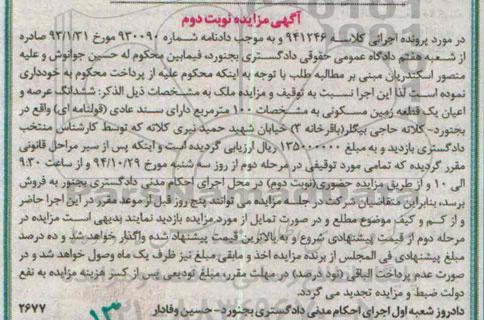 آگهی مزایده نوبت دوم
در مورد پرونده اجرائی کلاسه ۹۴۱۲۴۶ و به موجب دادنامه شماره ۹۳۰۰۹۰ مورخ ۹۳/۱/۳۱ صادره
از شعبه هفتم دادگاه عمومی حقوقی دادگستری بجنورد، فیمابین محکوم له حسین جوانوش و علیه
منصور اسکندریان مبنی بر مطالبه طلب با توجه به اینکه محکوم علیه از پرداخت محکوم به خودداری
نموده است لذا این اجرا نسبت به توقیف و مزایده ملک به مشخصات ذیل الذکر: ششدانگ عرصه و
اعیان یک قطعه زمین مسکونی به مشخصات ۱۰۰ مترمربع دارای سند عادی (قولنامه ای) واقع در
بجنورد- کلاته حاجی بیگلر(باقرخانه ۳) خیابان شهید حمید نیری کلاته که توسط کارشناس منتخب
دادگستری بازدید و به مبلغ ۱۳۵۰۰۰۰۰۰ ریال ارزیابی گردیده است و اینکه پس از سیر مراحل قانونی
مقرر گردیده که تمامی مورد توقیفی در مرحله دوم از روز سه شنبه مورخ ۹۴/۱۰/۲۹ و از ساعت ۹:۳۰
الی ۱۰ و از طریق مزایده حضوری(نوبت دوم) در محل اجرای احکام مدنی دادگستری بجنور به فروش
برسد، بنابراین متقاضیان شرکت در جلسه مزایده می توانند پنج روز قبل از موعد مقرر در این اجرا حاضر
و از کم و کیف موضوع مطلع و در صورت تمایل از مورد مزایده بازدید نمایند بدیهی است مزایده در
مرحله دوم از قیمت پیشنهادی شروع و به بالاترین قیمت پیشنهاد شده واگذار خواهد شد و ده درصد
مبلغ پیشنهادی فی المجلس از برنده مزایده اخذ و مابقی مبلغ نیز ظرف یک ماه وصول خواهد شد و در
صورت عدم پرداخت الباقی (نود درصد) در مهلت مقرر، مبلغ تودیعی پس از کسر هزینه مزایده به نفع
دولت ضبط و مزایده تجدید می گردد.
دادورز شعبه اول اجرای احکام مدنی دادگستری بجنورد- حسین وفادار ۲۶۷۷